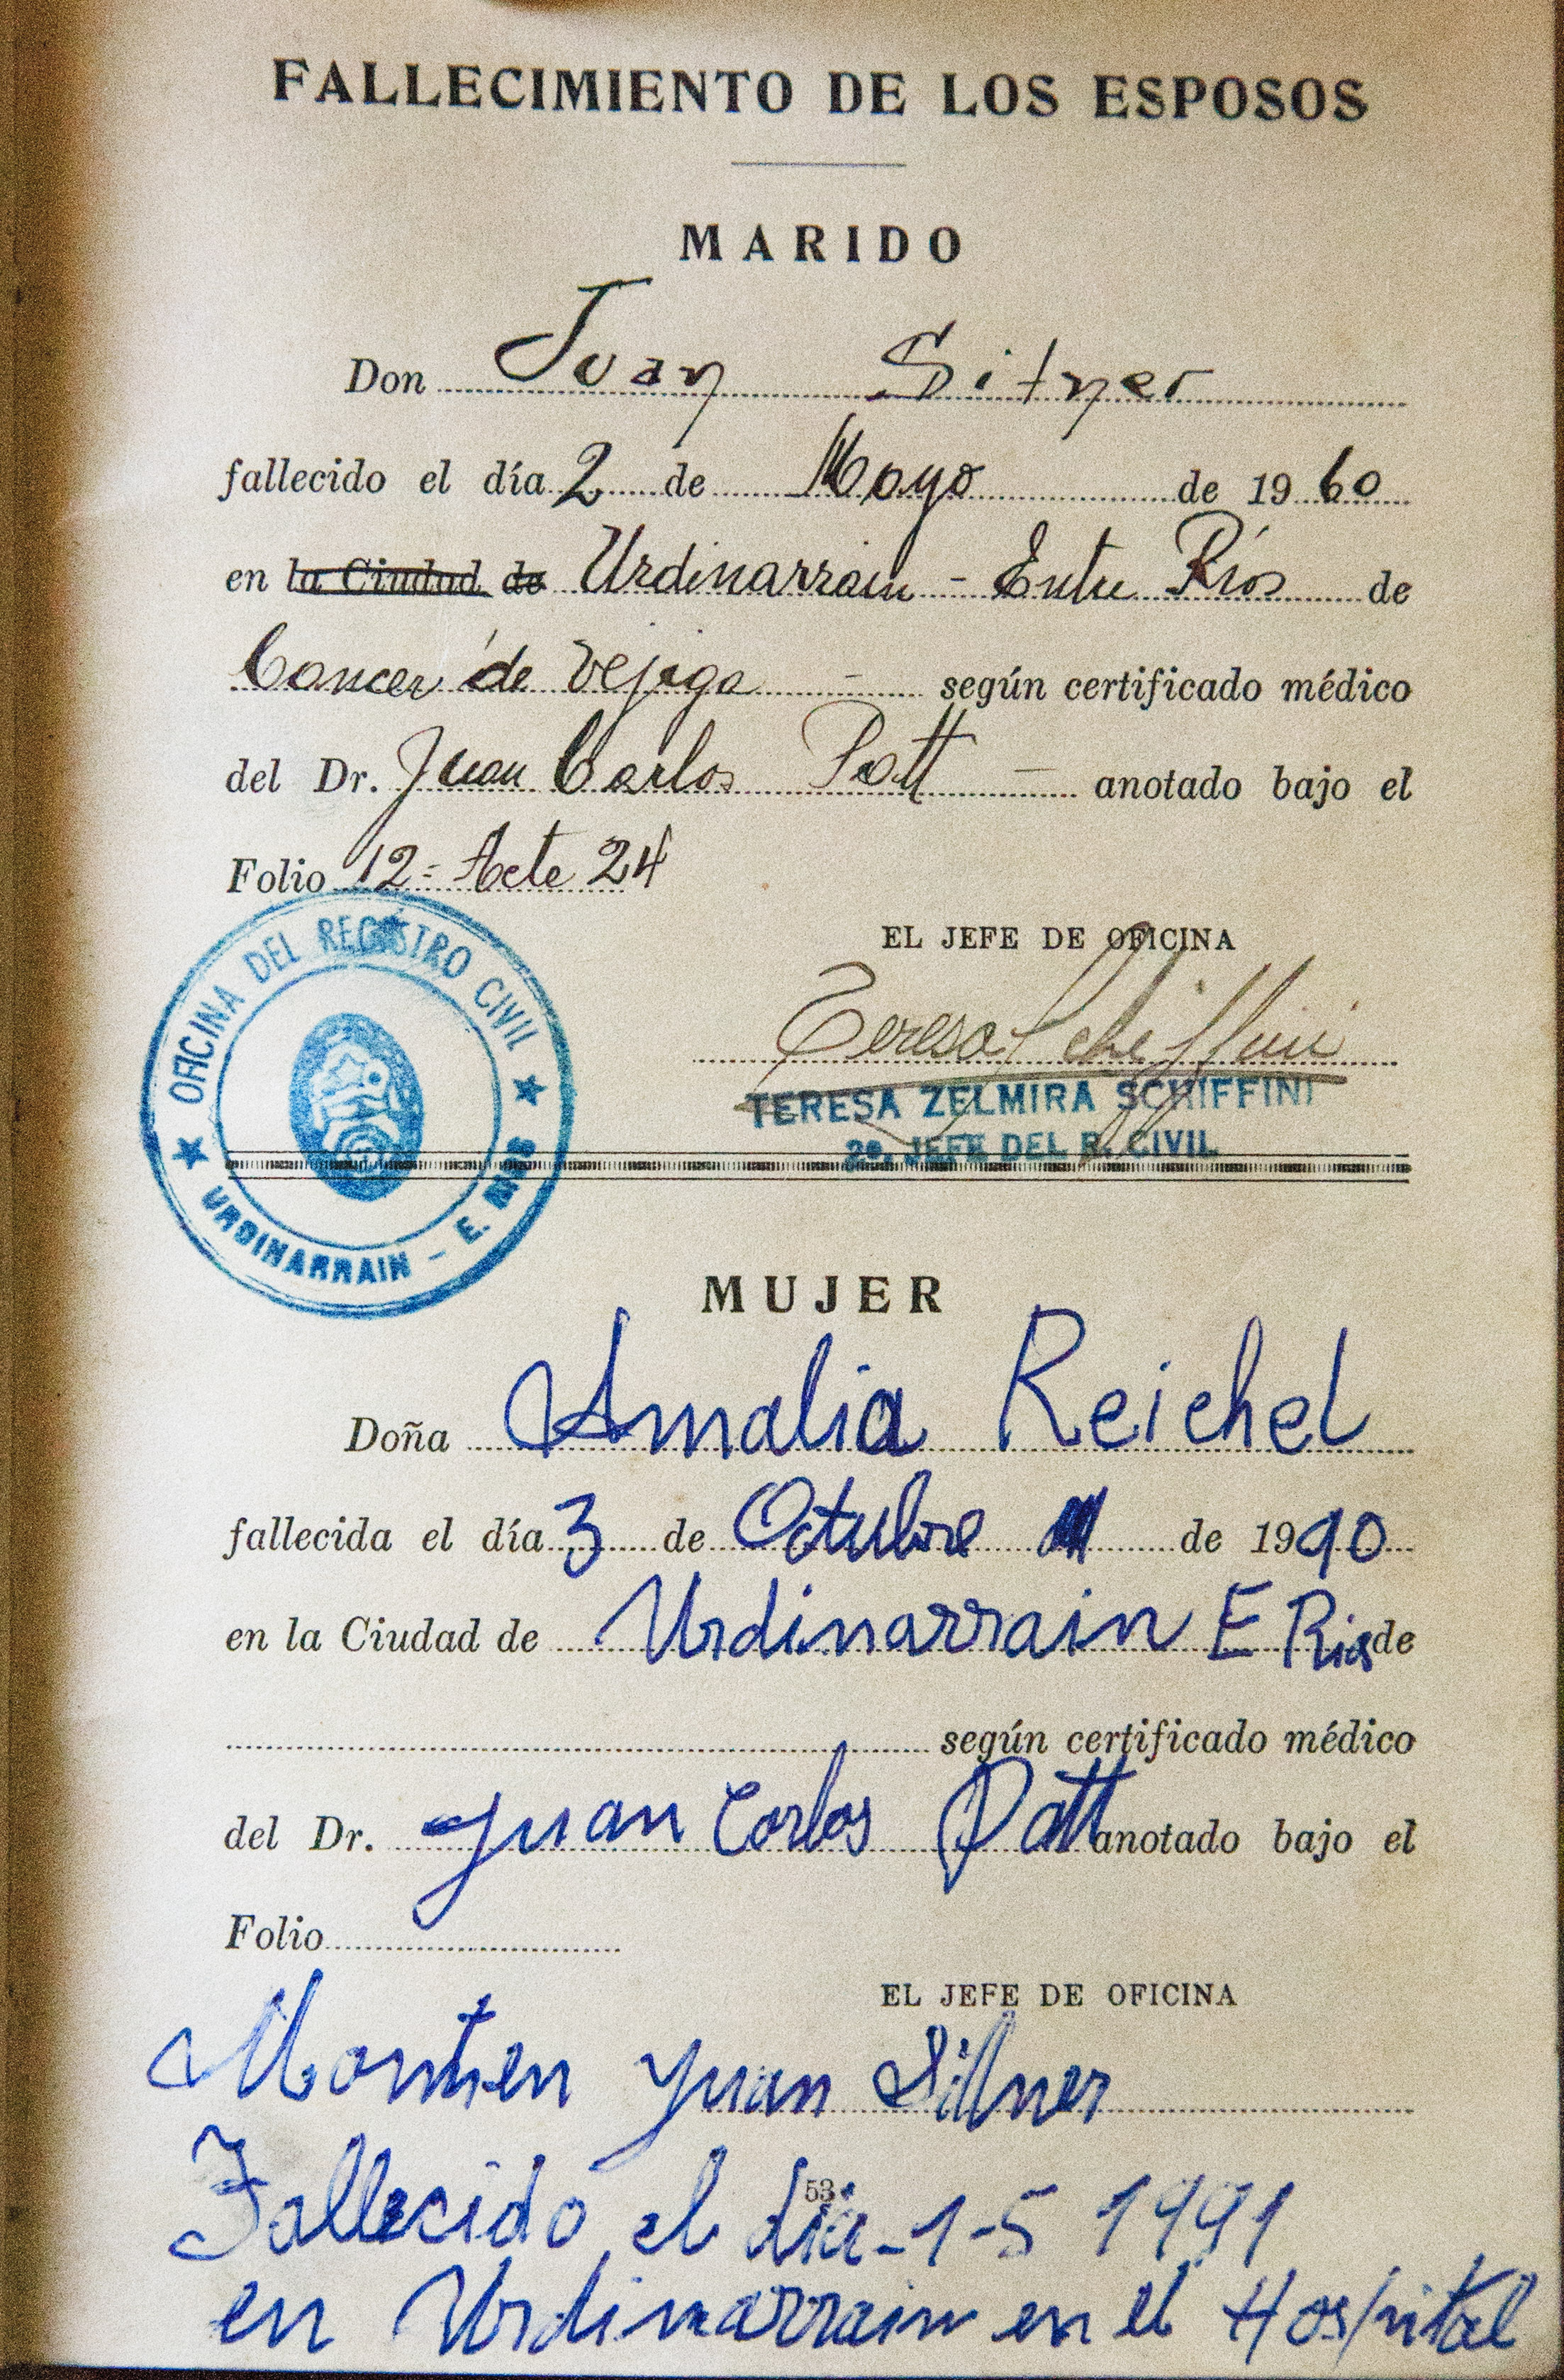 FALLECIMIENTO DE LOS ESPOSOS
MARIDO
Don Juan Sitner
fallecido el día 2 de Mayo de 1960
en la Ciudad de Urdinarrain - Entre Ríos de
Cancer de vejiga - según certificado médico
del Dr. Juan Carlos Patt - anotado bajo el
Folio 12 - Acta 24
OFICINA DEL REGISTRO CIVIL
URDINARRAIN - E. RIOS
EL JEFE DE OFICINA
Teresa Schiffini
TERESA ZELMIRA SCHIFFINI
2º. JEFE DEL R. CIVIL
MUJER
Doña Amalia Reichel
fallecida el día 3 de Octubre de 1990
en la Ciudad de Urdinarrain E Rios de
según certificado médico
del Dr. Juan Carlos Patt anotado bajo el
Folio
EL JEFE DE OFICINA
Juan Sittner
53
Fallecido el dia - 1-5 1991
en Urdinarrain en el Hospital